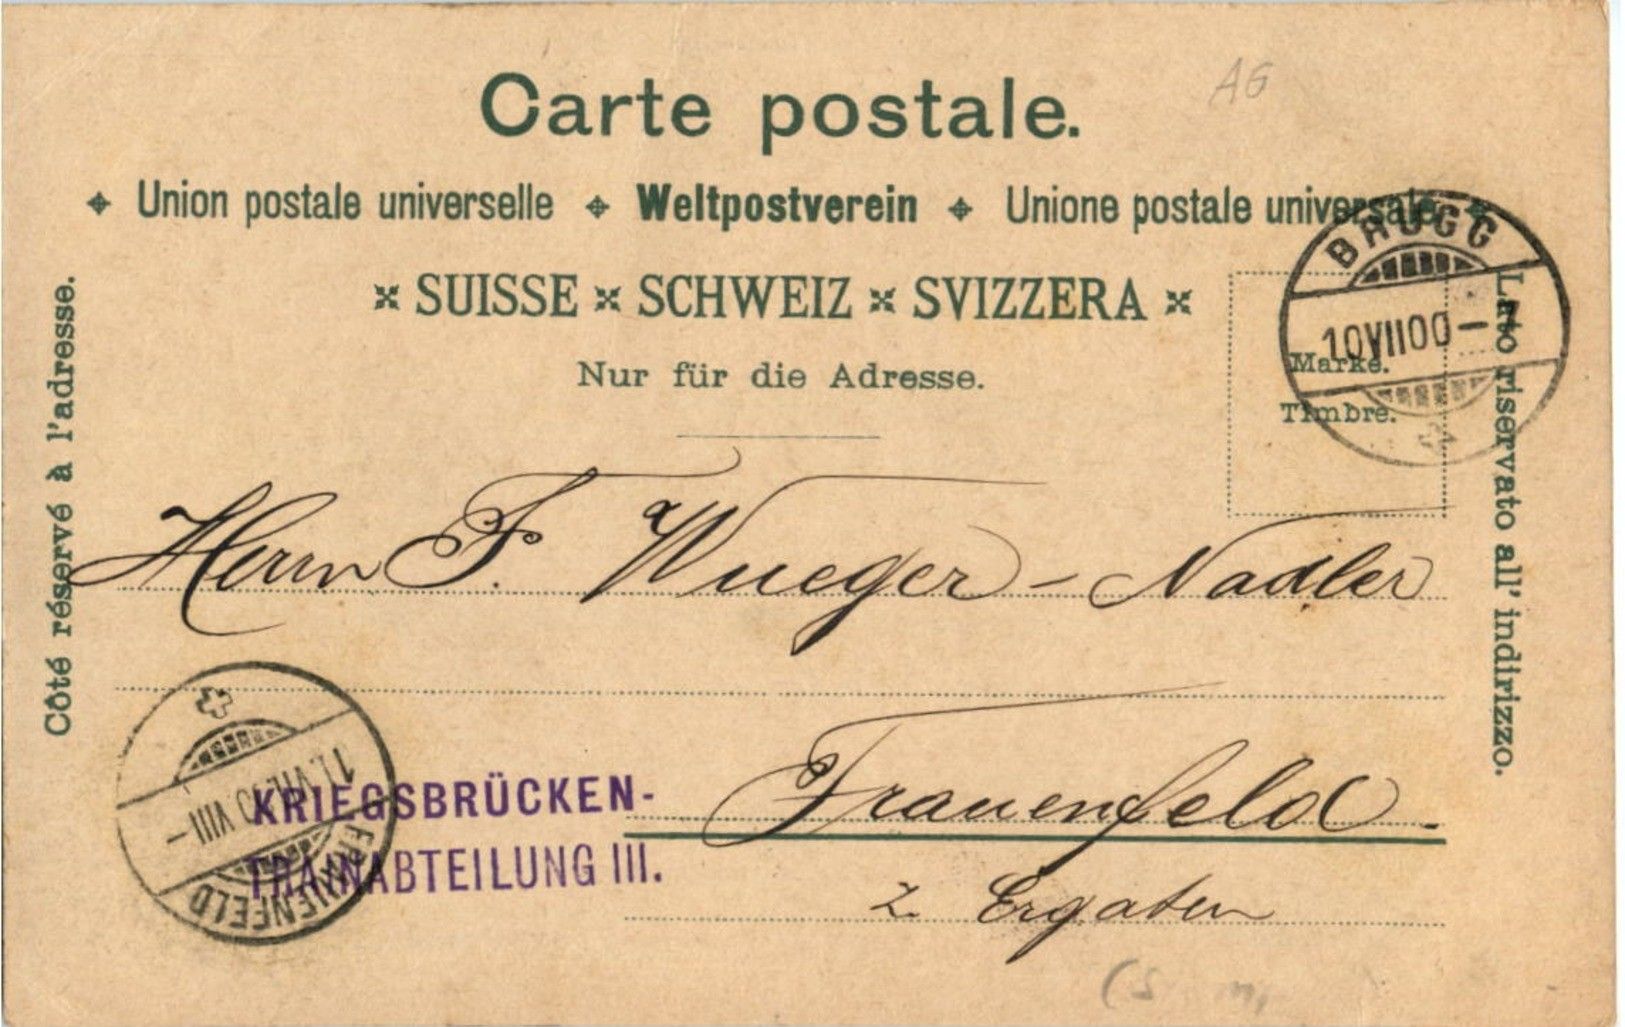 AG
Carte postale.
Union postale universelle Weltpostverein Unione postale universale
SUISSE SCHWEIZ SVIZZERA
Nur für die Adresse.
BRUGG
10VII00-
Marke.
Timbre.
Côté réservé à l'adresse.
Lato riservato all' indirizzo.
Herrn F. Wueger-Nadler
Frauenfeld.
z. Ergaten
KRIEGSBRÜCKEN-
TRAINABTEILUNG III.
VIII-
FRAUENFELD